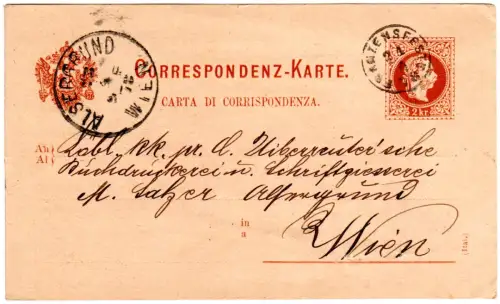 CORRESPONDENZ-KARTE.
CARTA DI CORRISPONDENZA.
ALSERGRUND WIEN
FRANZENSFESTE
2 kr
An
Al
Löbl. kk. pr. C. Ueberreuter'sche
Buchdruckerei u. Schriftgiesserei
M. Salzer Alsergrund
in
a
Wien
(Ital.)